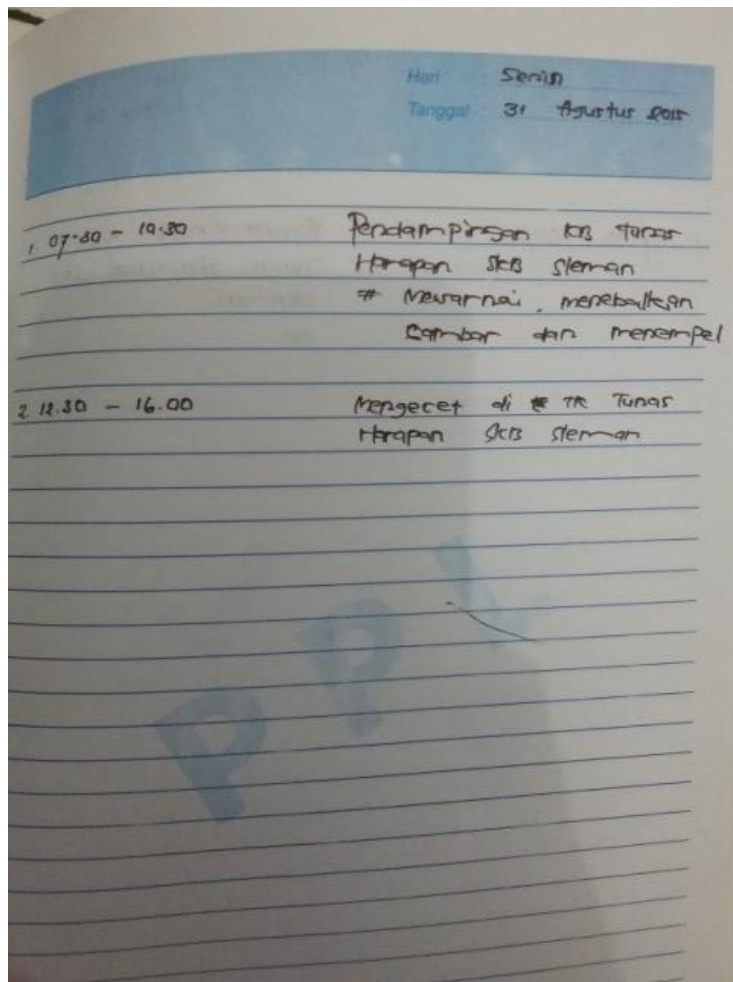 Hari : Senin
Tanggal : 31 Agustus 2015
1. 07.30 - 10.30 Pendampingan KB Tunas
Harapan SKB Sleman
# Mewarnai, menebalkan
Gambar dan menempel
2. 12.30 - 16.00 Mengecet di TK Tunas
Harapan SKB Sleman
PPL